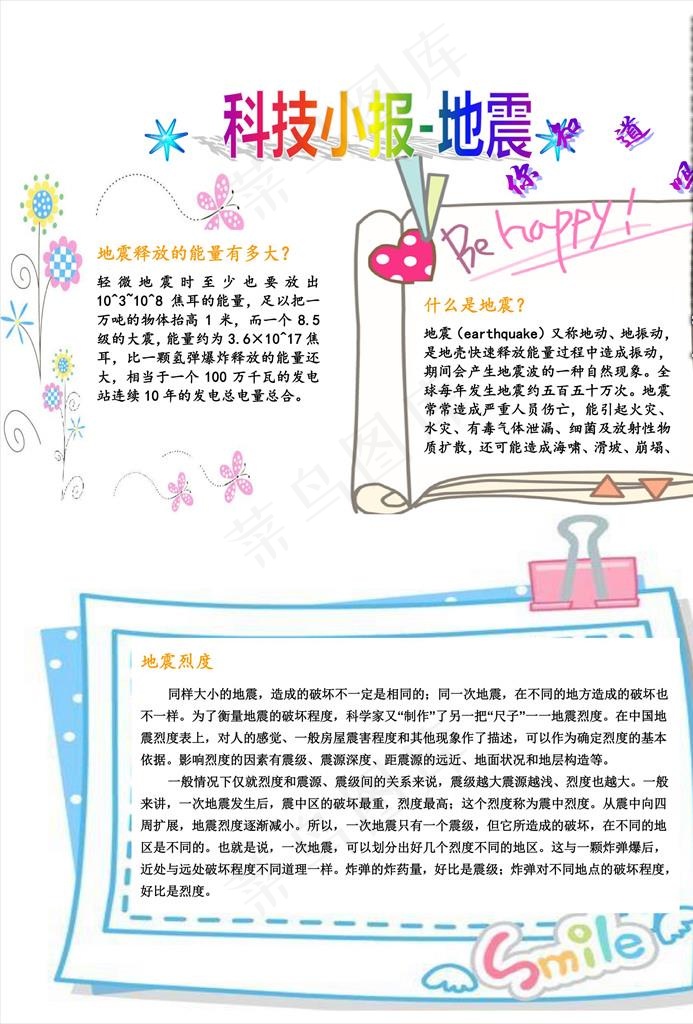 科技小报-地震
你知道吗
Be happy!
地震释放的能量有多大？
轻微地震时至少也要放出
10^3~10^8 焦耳的能量，足以把一
万吨的物体抬高 1 米，而一个 8.5
级的大震，能量约为 3.6×10^17 焦
耳，比一颗氢弹爆炸释放的能量还
大，相当于一个 100 万千瓦的发电
站连续 10 年的发电总电量总合。
什么是地震？
地震（earthquake）又称地动、地振动，
是地壳快速释放能量过程中造成振动，
期间会产生地震波的一种自然现象。全
球每年发生地震约五百五十万次。地震
常常造成严重人员伤亡，能引起火灾、
水灾、有毒气体泄漏、细菌及放射性物
质扩散，还可能造成海啸、滑坡、崩塌、
地震烈度
同样大小的地震，造成的破坏不一定是相同的；同一次地震，在不同的地方造成的破坏也
不一样。为了衡量地震的破坏程度，科学家又“制作”了另一把“尺子”一一地震烈度。在中国地
震烈度表上，对人的感觉、一般房屋震害程度和其他现象作了描述，可以作为确定烈度的基本
依据。影响烈度的因素有震级、震源深度、距震源的远近、地面状况和地层构造等。
一般情况下仅就烈度和震源、震级间的关系来说，震级越大震源越浅、烈度也越大。一般
来讲，一次地震发生后，震中区的破坏最重，烈度最高；这个烈度称为震中烈度。从震中向四
周扩展，地震烈度逐渐减小。所以，一次地震只有一个震级，但它所造成的破坏，在不同的地
区是不同的。也就是说，一次地震，可以划分出好几个烈度不同的地区。这与一颗炸弹爆后，
近处与远处破坏程度不同道理一样。炸弹的炸药量，好比是震级；炸弹对不同地点的破坏程度，
好比是烈度。
Smile
菜鸟图库
菜鸟图库
菜鸟图库